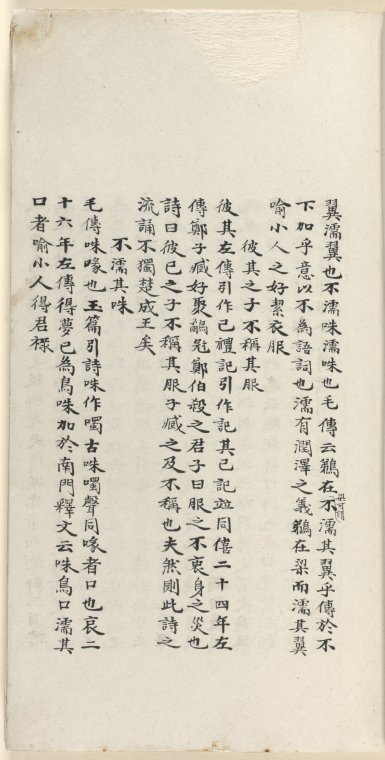 翼濡翼也不濡咮濡咮也毛傳云鵜在不濡其翼乎傳於不
梁可謂
下加乎意以不為語詞也濡有潤澤之義鵜在梁而濡其翼
喻小人之好絜衣服
彼其之子不稱其服
彼其左傳引作己禮記引作記其己記竝同僖二十四年左
傳鄭子臧好聚鷸冠鄭伯殺之君子曰服之不衷身之災也
詩曰彼己之子不稱其服子臧之及不稱也夫然則此詩之
流誦不獨楚成王矣
不濡其咮
毛傳咮喙也玉篇引詩咮作噣古咮噣聲同喙者口也哀二
十六年左傳得夢已為鳥咮加於南門釋文云咮鳥口濡其
口者喻小人得君祿